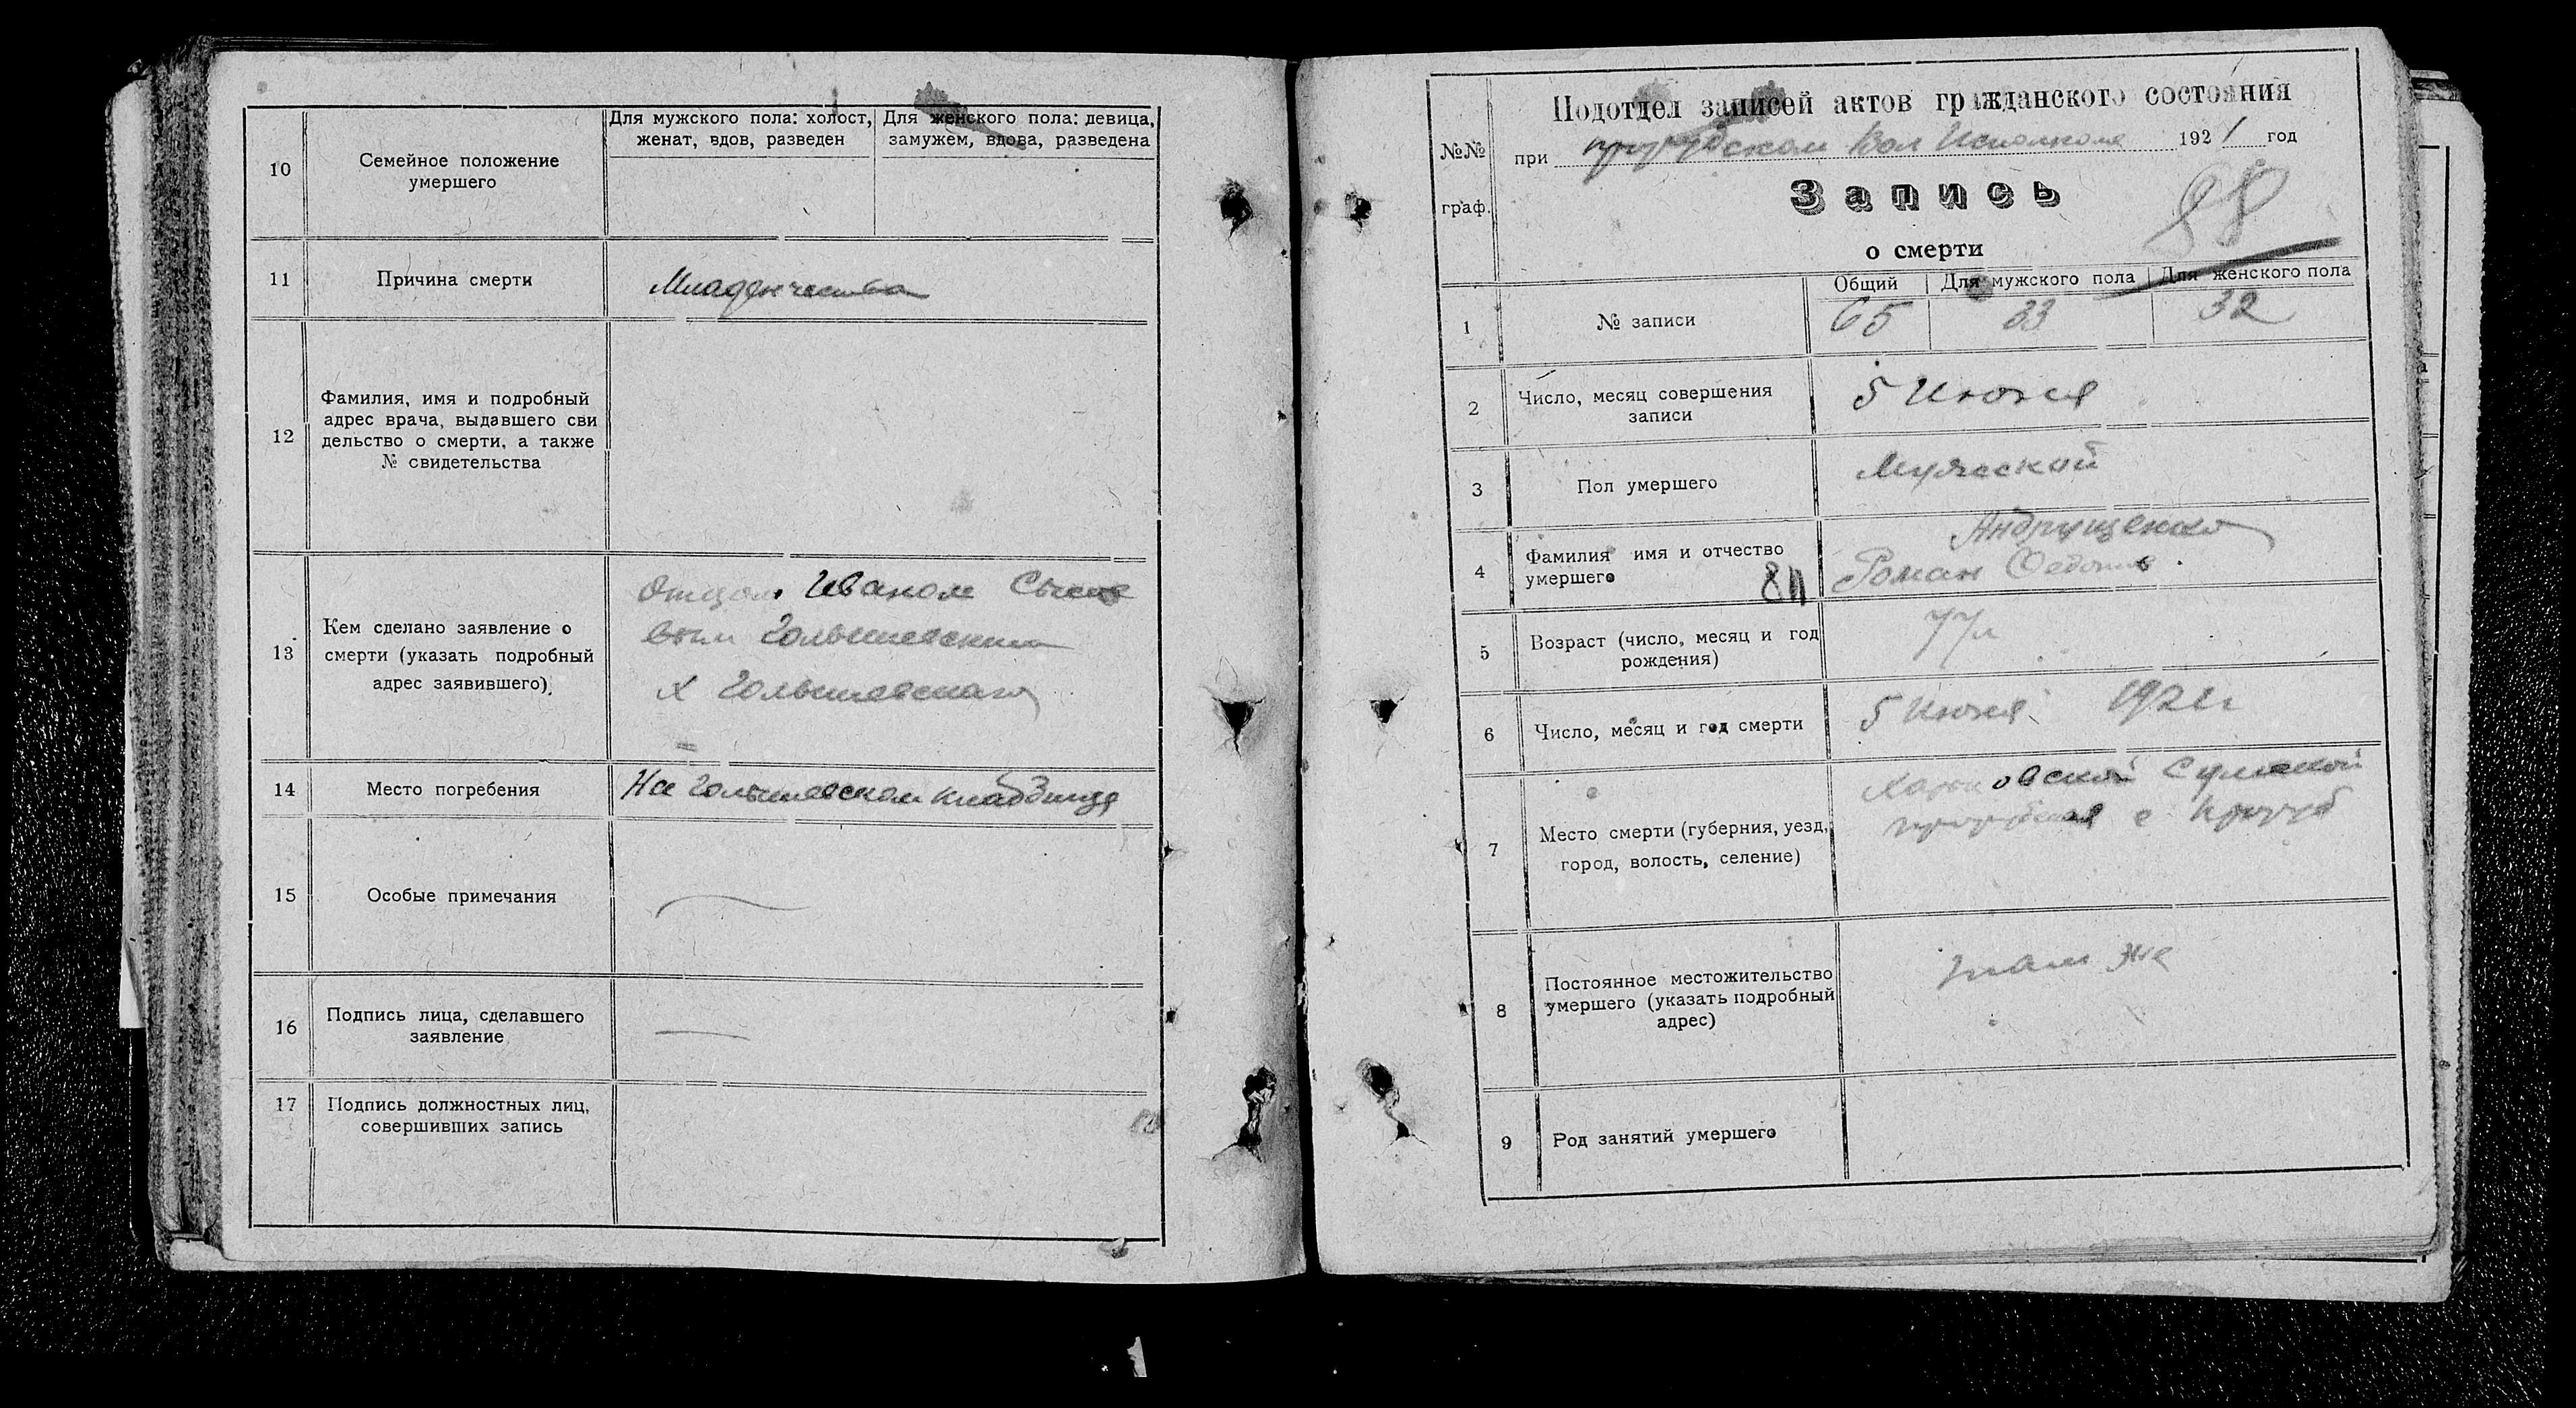 10
Семейное положение
умершего
Для мужского пола: холост,
женат, вдов, разведен
Для женского пола: девица,
замужем, вдова, разведена
11
Причина смерти
Младенчества
12
Фамилия, имя и подробный
адрес врача, выдавшего сви
дельство о смерти, а также
№ свидетельства
13
Кем сделано заявление о
смерти (указать подробный
адрес заявившего)
Отцом Иваном
вым
х
14
Место погребения
На кладбище
15
Особые примечания
16
Подпись лица, сделавшего
заявление
17
Подпись должностных лиц,
совершивших запись
Подотдел записей актов гражданского состояния
№№
граф.
при Вол Исполкоме 1921 год
Запись
88
о смерти
Общий
Для мужского пола
Для женского пола
1
№ записи
65
33
32
2
Число, месяц совершения
записи
5 Июня
3
Пол умершего
Мужской
4
Фамилия имя и отчество
умершего
Андрущенко
Роман
5
Возраст (число, месяц и год
рождения)
77л
6
Число, месяц и год смерти
5 Июня 1921г
7
Место смерти (губерния, уезд,
город, волость, селение)
Харьковской Сумской
с
8
Постоянное местожительство
умершего (указать подробный
адрес)
там же
9
Род занятий умершего